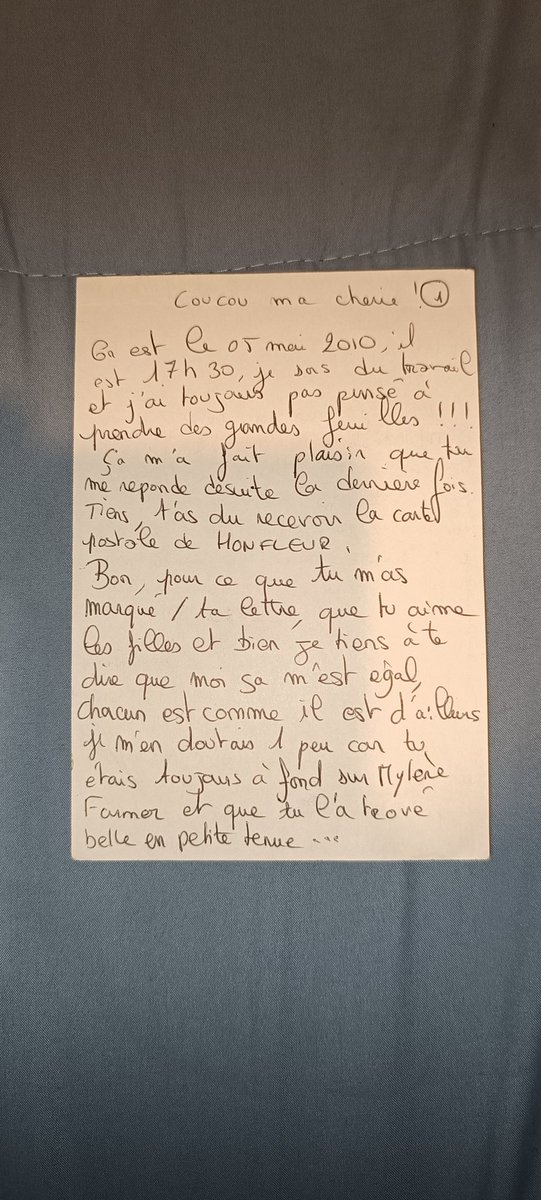 Coucou ma cherie ! 1
Ça est le 05 mai 2010, il
est 17h30, je sors du travail
et j'ai toujours pas pensé à
prendre des grandes feuilles !!!
Ça m'a fait plaisir que tu
me reponde desuite la derniere fois.
Tiens, t'as du recevoir la carte
postale de HONFLEUR.
Bon, pour ce que tu m'as
marqué / ta lettre, que tu aime
les filles et bien je tiens à te
dire que moi sa m'est egal,
chacun est comme il est d'ailleurs
je m'en doutais 1 peu car tu
étais toujours à fond sur Mylène
Farmer et que tu l'a trouvé
belle en petite tenue ...